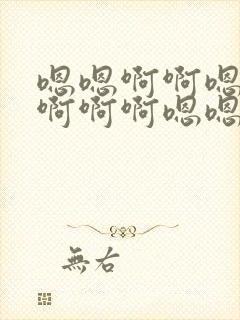 嗯嗯啊啊嗯
啊啊啊嗯嗯
無右